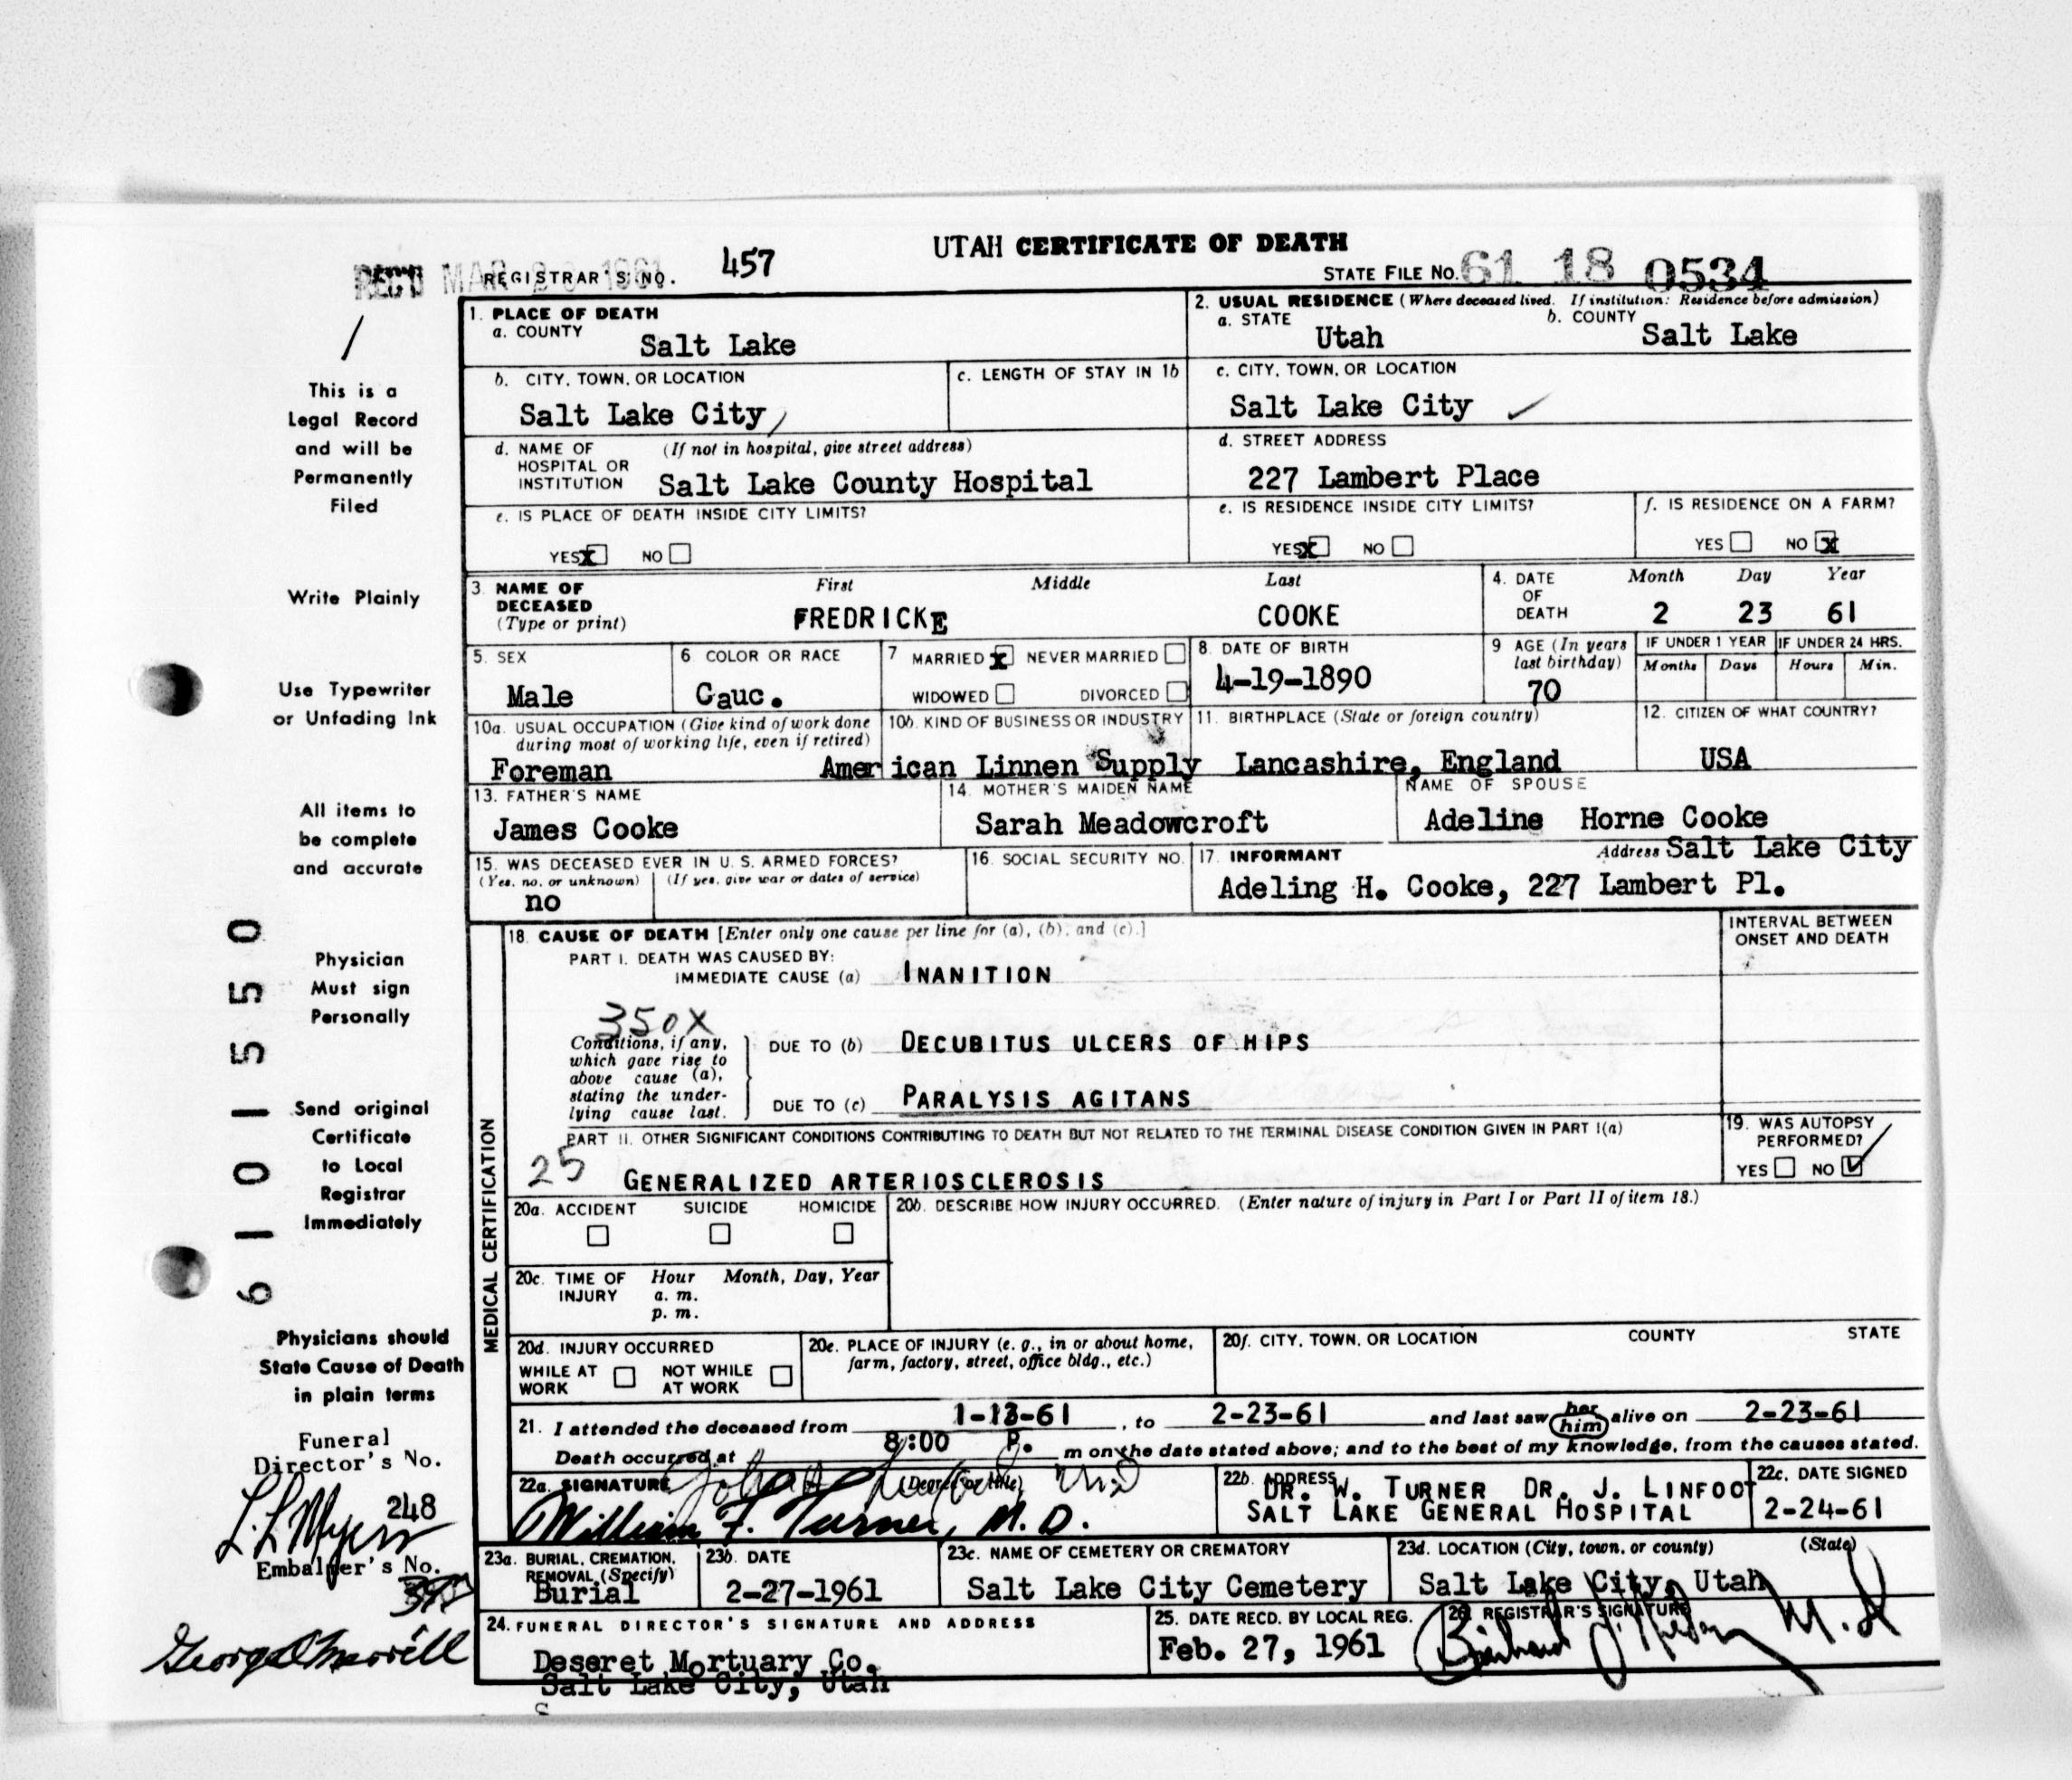 UTAH CERTIFICATE OF DEATH
REC'D MAR 1961 REGISTRAR'S NO. 457
STATE FILE NO. 61 18 0534
1. PLACE OF DEATH
a. COUNTY
Salt Lake
2. USUAL RESIDENCE (Where deceased lived. If institution: Residence before admission)
a. STATE b. COUNTY
Utah Salt Lake
b. CITY, TOWN, OR LOCATION
Salt Lake City
c. LENGTH OF STAY IN 1b
c. CITY, TOWN, OR LOCATION
Salt Lake City ✓
d. NAME OF HOSPITAL OR INSTITUTION (If not in hospital, give street address)
Salt Lake County Hospital
d. STREET ADDRESS
227 Lambert Place
e. IS PLACE OF DEATH INSIDE CITY LIMITS?
YES X NO
e. IS RESIDENCE INSIDE CITY LIMITS?
YES X NO
f. IS RESIDENCE ON A FARM?
YES NO X
3. NAME OF DECEASED (Type or print)
First Middle Last
FREDRICKE COOKE
4. DATE OF DEATH
Month Day Year
2 23 61
5. SEX
Male
6. COLOR OR RACE
Cauc.
7 MARRIED X NEVER MARRIED
WIDOWED DIVORCED
8. DATE OF BIRTH
4-19-1890
9 AGE (In years last birthday)
70
IF UNDER 1 YEAR
Months Days
IF UNDER 24 HRS.
Hours Min.
10a. USUAL OCCUPATION (Give kind of work done during most of working life, even if retired)
Foreman
10b. KIND OF BUSINESS OR INDUSTRY
American Linnen Supply
11. BIRTHPLACE (State or foreign country)
Lancashire, England
12. CITIZEN OF WHAT COUNTRY?
USA
13. FATHER'S NAME
James Cooke
14. MOTHER'S MAIDEN NAME
Sarah Meadowcroft
NAME OF SPOUSE
Adeline Horne Cooke
15. WAS DECEASED EVER IN U. S. ARMED FORCES?
(Yes, no, or unknown) (If yes, give war or dates of service)
no
16. SOCIAL SECURITY NO.
17. INFORMANT Address Salt Lake City
Adeling H. Cooke, 227 Lambert Pl.
MEDICAL CERTIFICATION
18. CAUSE OF DEATH [Enter only one cause per line for (a), (b), and (c).]
INTERVAL BETWEEN ONSET AND DEATH
PART I. DEATH WAS CAUSED BY:
IMMEDIATE CAUSE (a) INANITION
350X
Conditions, if any, which gave rise to above cause (a), stating the underlying cause last.
DUE TO (b) DECUBITUS ULCERS OF HIPS
DUE TO (c) PARALYSIS AGITANS
PART II. OTHER SIGNIFICANT CONDITIONS CONTRIBUTING TO DEATH BUT NOT RELATED TO THE TERMINAL DISEASE CONDITION GIVEN IN PART I(a)
25 GENERALIZED ARTERIOSCLEROSIS
19. WAS AUTOPSY PERFORMED?
YES NO ✓
20a. ACCIDENT SUICIDE HOMICIDE
20b. DESCRIBE HOW INJURY OCCURRED. (Enter nature of injury in Part I or Part II of item 18.)
20c. TIME OF INJURY Hour Month, Day, Year
a. m.
p. m.
20d. INJURY OCCURRED
WHILE AT WORK NOT WHILE AT WORK
20e. PLACE OF INJURY (e. g., in or about home, farm, factory, street, office bldg., etc.)
20f. CITY, TOWN, OR LOCATION COUNTY STATE
21. I attended the deceased from 1-13-61, to 2-23-61 and last saw her him alive on 2-23-61
Death occurred at 8:00 P. m on the date stated above; and to the best of my knowledge, from the causes stated.
22a. SIGNATURE (Degree or title) M.D
William F. Turner, M.D.
22b. ADDRESS
DR. W. TURNER DR. J. LINFOOT
SALT LAKE GENERAL HOSPITAL
22c. DATE SIGNED
2-24-61
23a. BURIAL, CREMATION, REMOVAL (Specify)
Burial
23b. DATE
2-27-1961
23c. NAME OF CEMETERY OR CREMATORY
Salt Lake City Cemetery
23d. LOCATION (City, town, or county) (State)
Salt Lake City, Utah
24. FUNERAL DIRECTOR'S SIGNATURE AND ADDRESS
Deseret Mortuary Co.
Salt Lake City, Utah
S
25. DATE RECD. BY LOCAL REG.
Feb. 27, 1961
26. REGISTRAR'S SIGNATURE
M.D
This is a
Legal Record
and will be
Permanently
Filed
Write Plainly
Use Typewriter
or Unfading Ink
All items to
be complete
and accurate
Physician
Must sign
Personally
Send original
Certificate
to Local
Registrar
Immediately
Physicians should
State Cause of Death
in plain terms
6101550
Funeral
Director's No.
248
L. L. Myers
Embalmer's No.
George Morrill